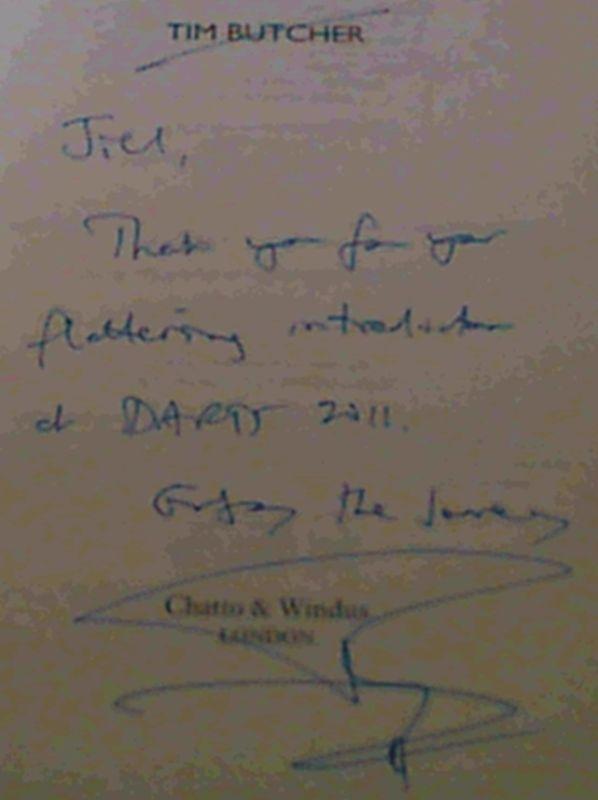 TIM BUTCHER
Jill,
Thank you for your
flattering introduction
at DARTS 2011.
Enjoy the journey
Chatto & Windus
LONDON